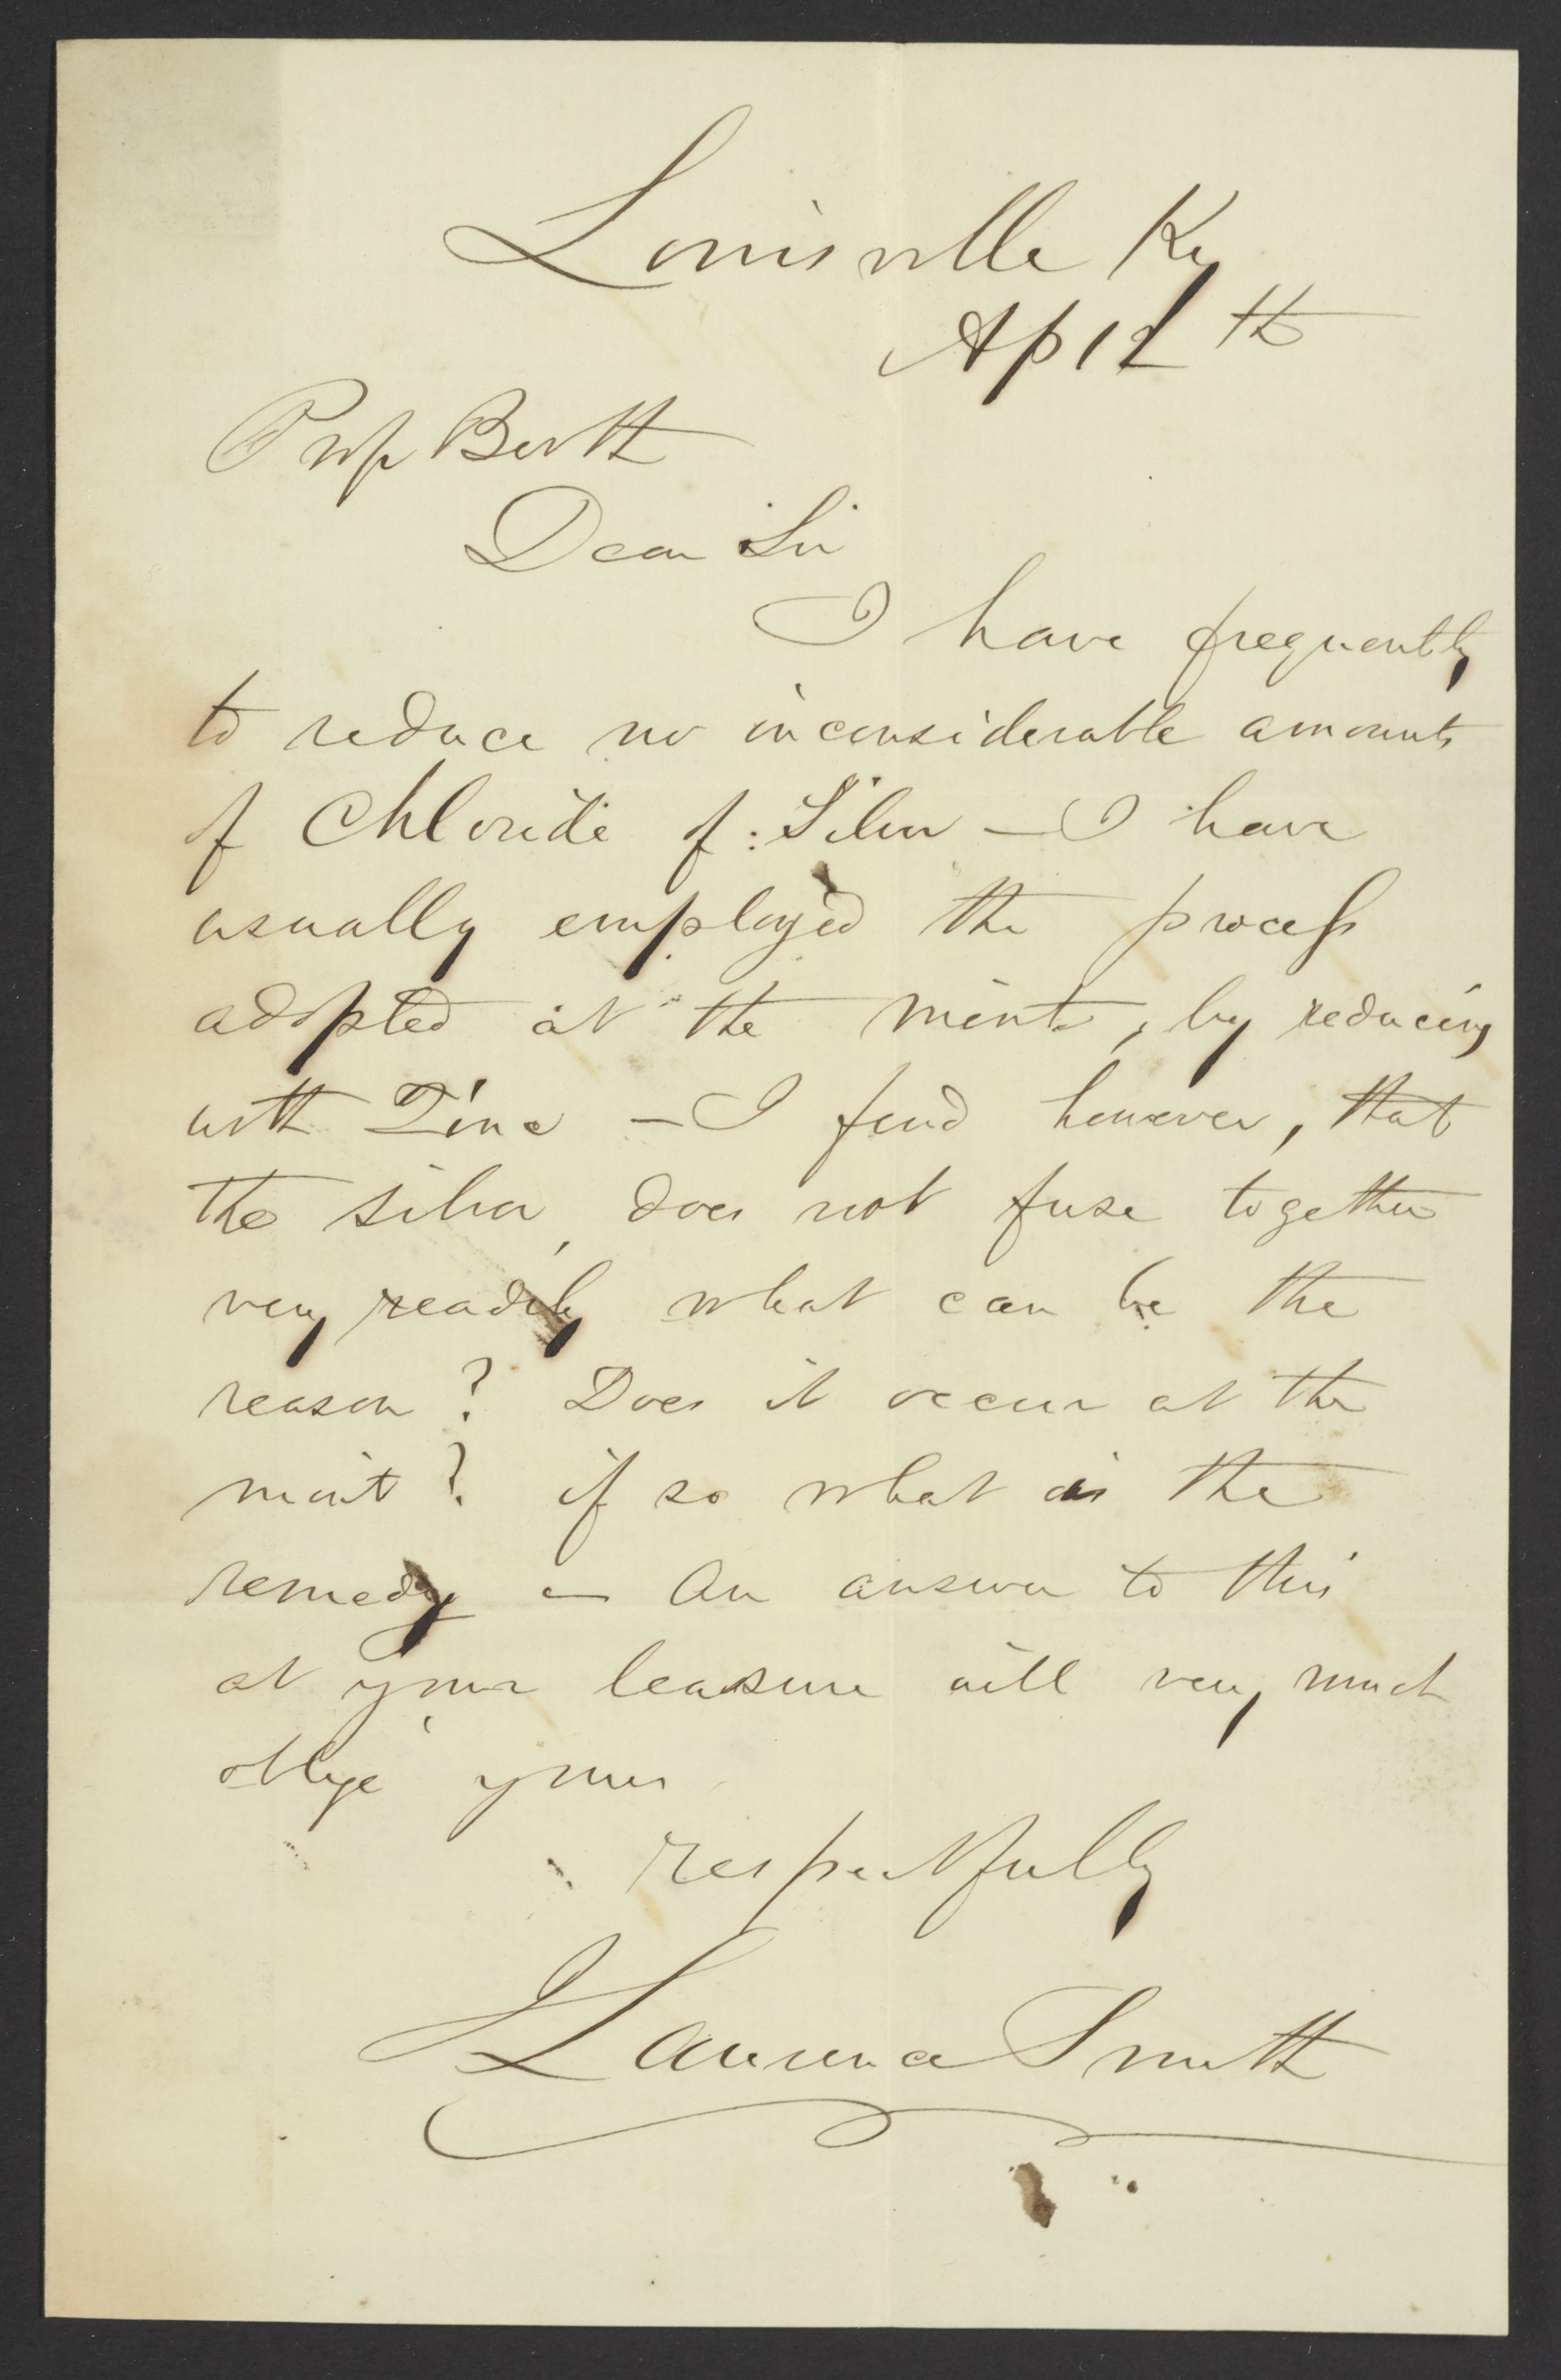 Louisville Ky
Ap 12th
Prof Booth
Dear Sir
I have frequently
to reduce no inconsiderable amounts
of Chloride of Silver — I have
usually employed the process
adopted at the mint, by reducing
with Zinc — I find however, that
the silver, does not fuse together
very readily what can be the
reason? Does it occur at the
mint? if so what is the
remedy — An answer to this
at your leasure will very much
oblige yours
respectfully
J Lawrence Smith